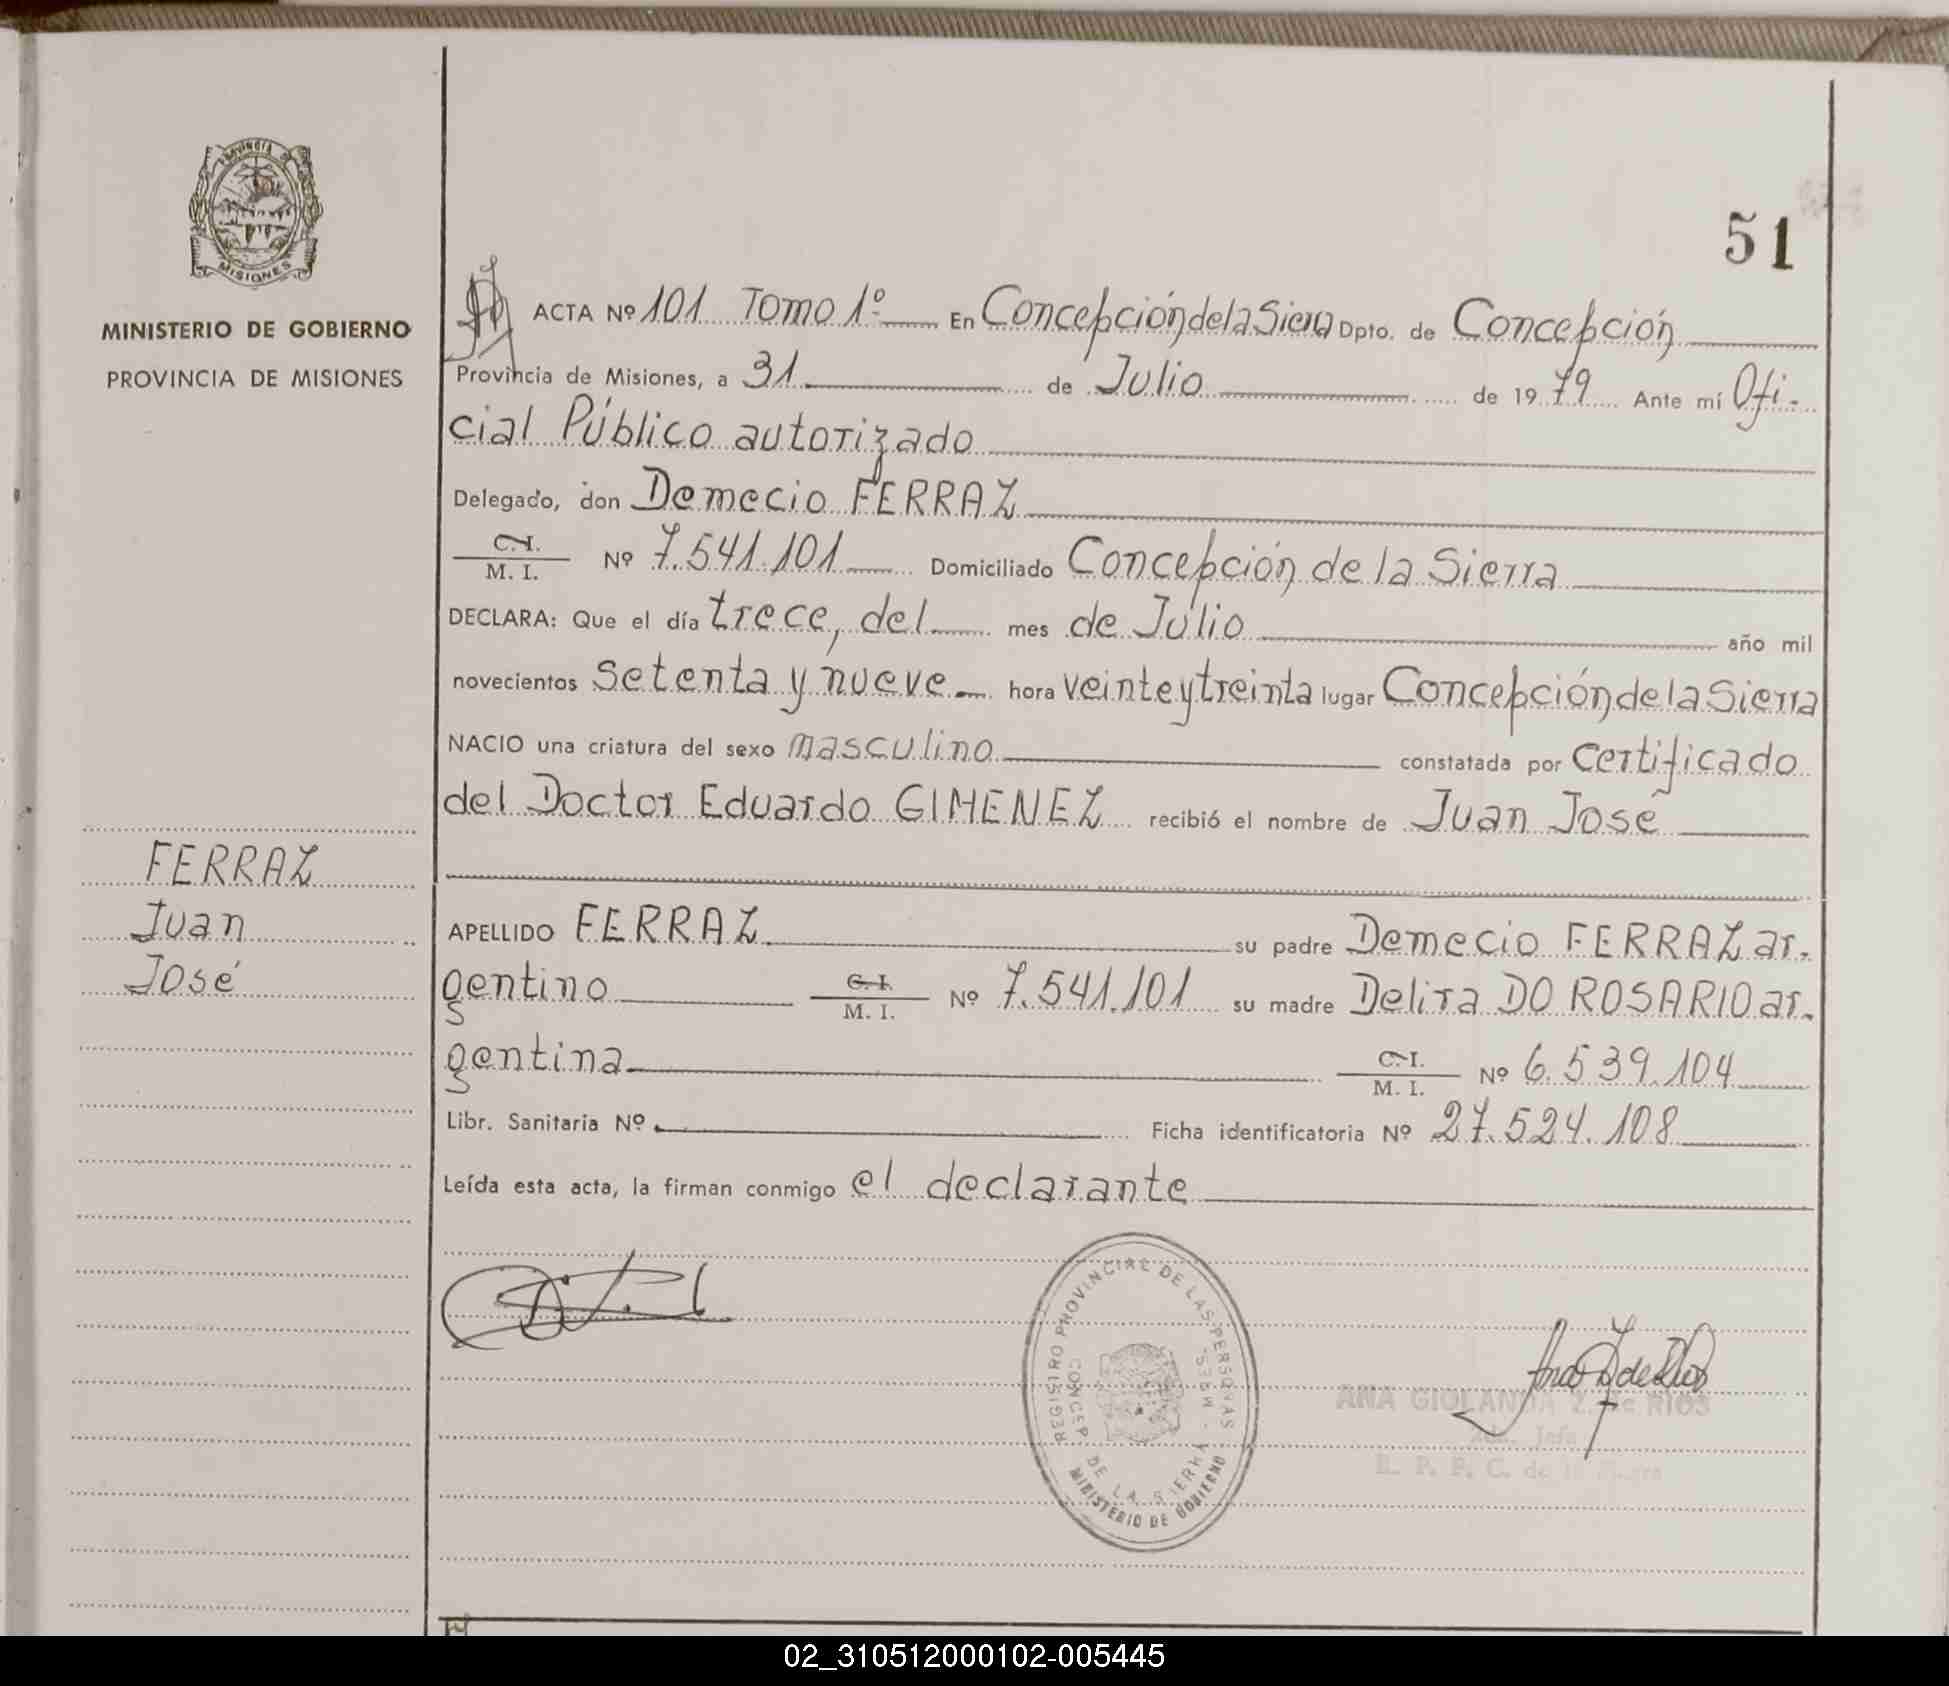 PROVINCIA DE
MISIONES
MINISTERIO DE GOBIERNO
PROVINCIA DE MISIONES
51
ACTA Nº 101 Tomo 1º En Concepción de la Sierra Dpto. de Concepción
Provincia de Misiones, a 31 de Julio de 1979 Ante mí Ofi-
cial Público autorizado
Delegado, don Demecio FERRAZ
C.I. M. I. Nº 7.541.101 Domiciliado Concepción de la Sierra
DECLARA: Que el día trece, del mes de Julio año mil
novecientos setenta y nueve hora veinte y treinta lugar Concepción de la Sierra
NACIO una criatura del sexo masculino constatada por certificado
del Doctor Eduardo GIMENEZ recibió el nombre de Juan José
FERRAZ
Juan
José
APELLIDO FERRAZ su padre Demecio FERRAZ ar-
gentino C.I. M. I. Nº 7.541.101 su madre Delira DO ROSARIO ar-
gentina C.I. M. I. Nº 6.539.104
Libr. Sanitaria Nº Ficha identificatoria Nº 27.524.108
Leída esta acta, la firman conmigo el declarante
REGISTRO PROVINCIAL DE LAS PERSONAS
CONCEP. DE LA SIERRA - MNES.
MINISTERIO DE GOBIERNO
ANA GIOLANDA Z. de RIOS
02_310512000102-005445